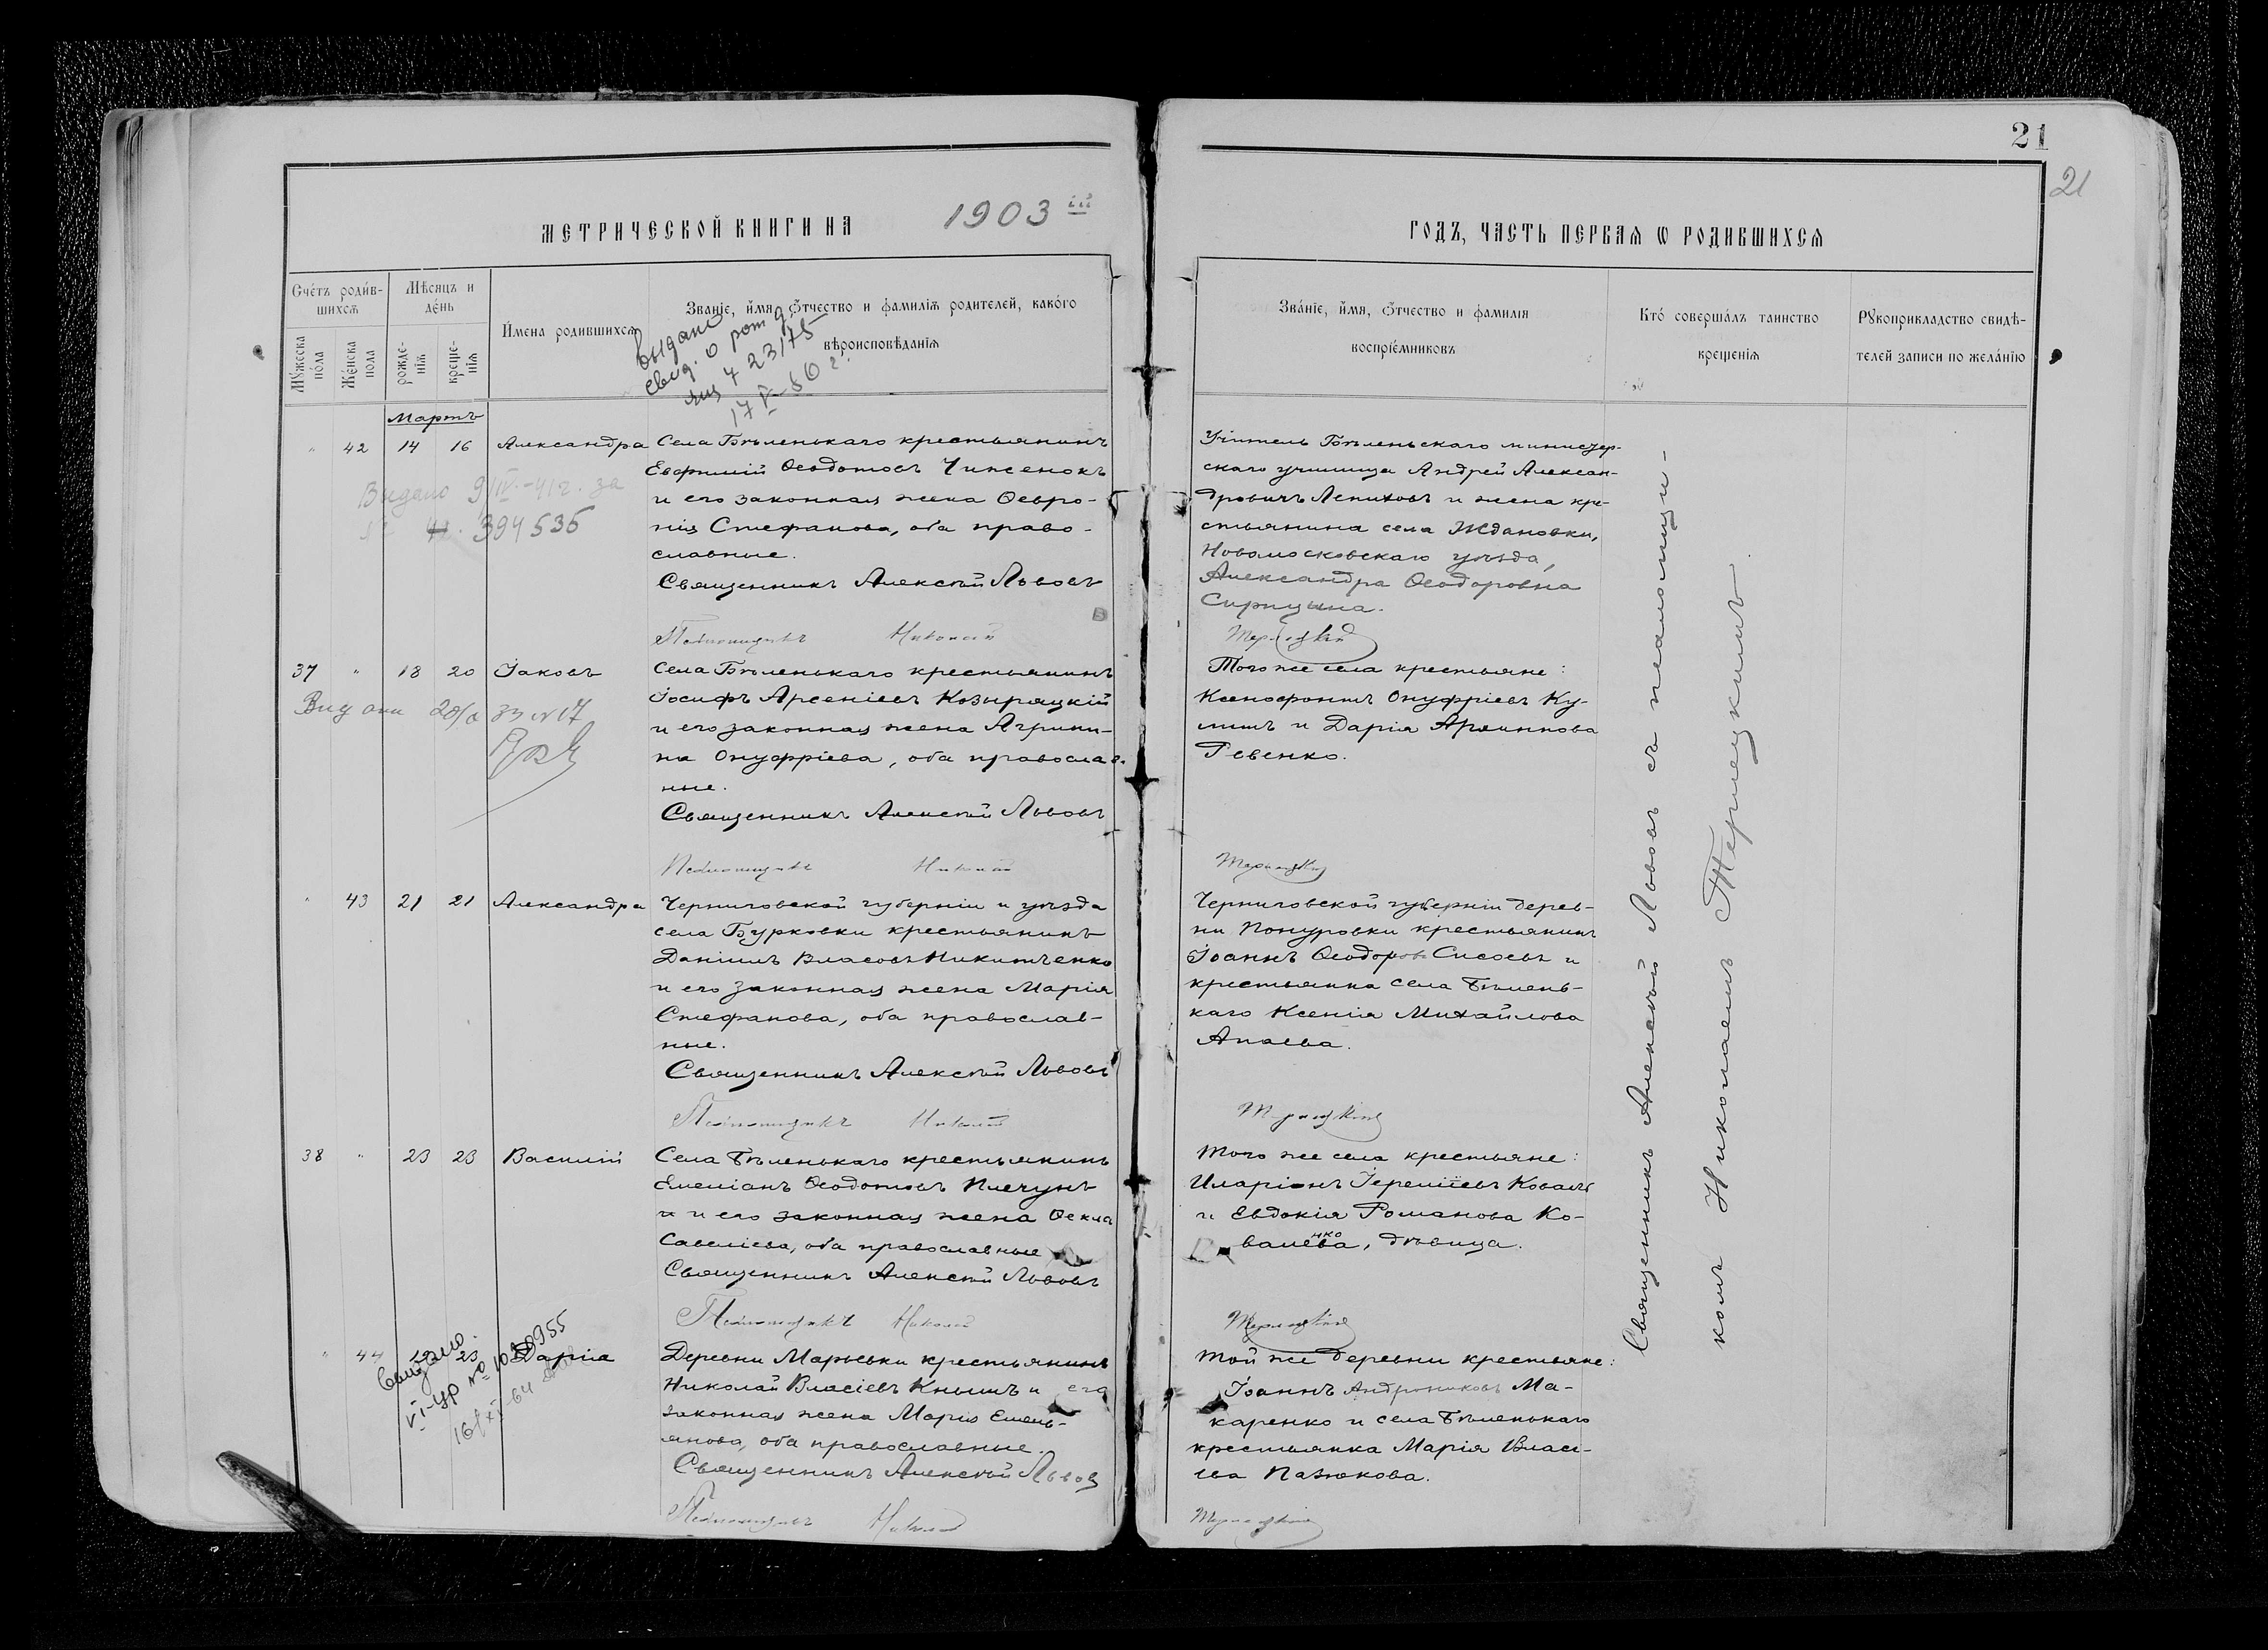 21
21
МЕТРИЧЕСКОЙ КНИГИ НА 1903 ій
ГОДЪ, ЧАСТЬ ПЕРВАЯ Ѡ РОДИВШИХСЯ
Счетъ родив-
шихся
Мѣсяцъ и
день
Имена родившихся
Званіе, имя, отчество и фамилія родителей, какого
вѣроисповѣданія
Мужеска пола
Женска пола
рожде-
нія
креще-
нія
Званіе, имя, отчество и фамилія
воспріемниковъ
Кто совершалъ таинство
крещенія
Рукоприкладство свидѣ-
телей записи по желанію
Выдано
свид. о рожд.
423175
17 V-60 г.
Мартъ
" 42 14 16 Александра
Села Бѣленькаго крестьянинъ
Евфимій Ѳеодотовъ Чиженокъ
и его законная жена Ѳевро-
нія Стефанова, оба право-
славные.
Священникъ Алексѣй Львовъ
Псаломщикъ Николай
Видано 9/IV-41 г. за
394535
Учитель Бѣленьскаго министер-
скаго училища Андрей Алексан-
дровичъ Лепиховъ и жена кре-
стьянина села Ждановки,
Новомосковскаго уѣзда,
Александра Ѳеодоровна
Сирицына.
Терлецкій
37 " 18 20 Іаковъ
Села Бѣленькаго крестьянинъ
Іосифъ Арсеніевъ Козыряцкій
и его законная жена Агрипи-
на Онуфріева, оба православ-
ные.
Священникъ Алексѣй Львовъ
Псаломщикъ Николай
Того же села крестьяне:
Ксенофонтъ Онуфріевъ Ку-
лишъ и Дарія
Ревенко.
Терлецкій
" 43 21 21 Александра
Черниговской губерніи и уѣзда
села Бурковки крестьянинъ
Даніилъ Власовъ Никитченко
и его законная жена Марія
Стефанова, оба православ-
ные.
Священникъ Алексѣй Львовъ
Псаломщикъ Николай
Черниговской губерніи дерев-
ни Понуровки крестьянинъ
Іоаннъ Ѳеодоровъ Сисоевъ и
крестьянка села Бѣлень-
каго Ксенія Михайлова
Апаева.
Терлецкій
38 " 23 23 Василій
Села Бѣленькаго крестьянинъ
Емеліанъ Ѳеодотовъ Плечунъ
и и его законная жена Ѳекла
Савеліева, оба православные
Священникъ Алексѣй Львовъ
Псаломщикъ Николай
Того же села крестьяне:
Иларіонъ Іереміевъ Коваль
и Евдокія Романова Ко-
валева, дѣвица.
нко
Терлецкій
" 44 23 Дарія
Деревни Марьевки крестьянинъ
Николай Власіевъ Кнышъ и его
законная жена Марія Емель-
янова, оба православные.
Священникъ Алексѣй Львовъ
Псаломщикъ Николай
Той же деревни крестьяне:
Іоаннъ Андрониковъ Ма-
каренко и села Бѣленькаго
крестьянка Марія Власі-
ева Пазюкова.
Терлецкій
Священникъ Алексѣй Львовъ съ псаломщи-
комъ Николаемъ Терлецкимъ